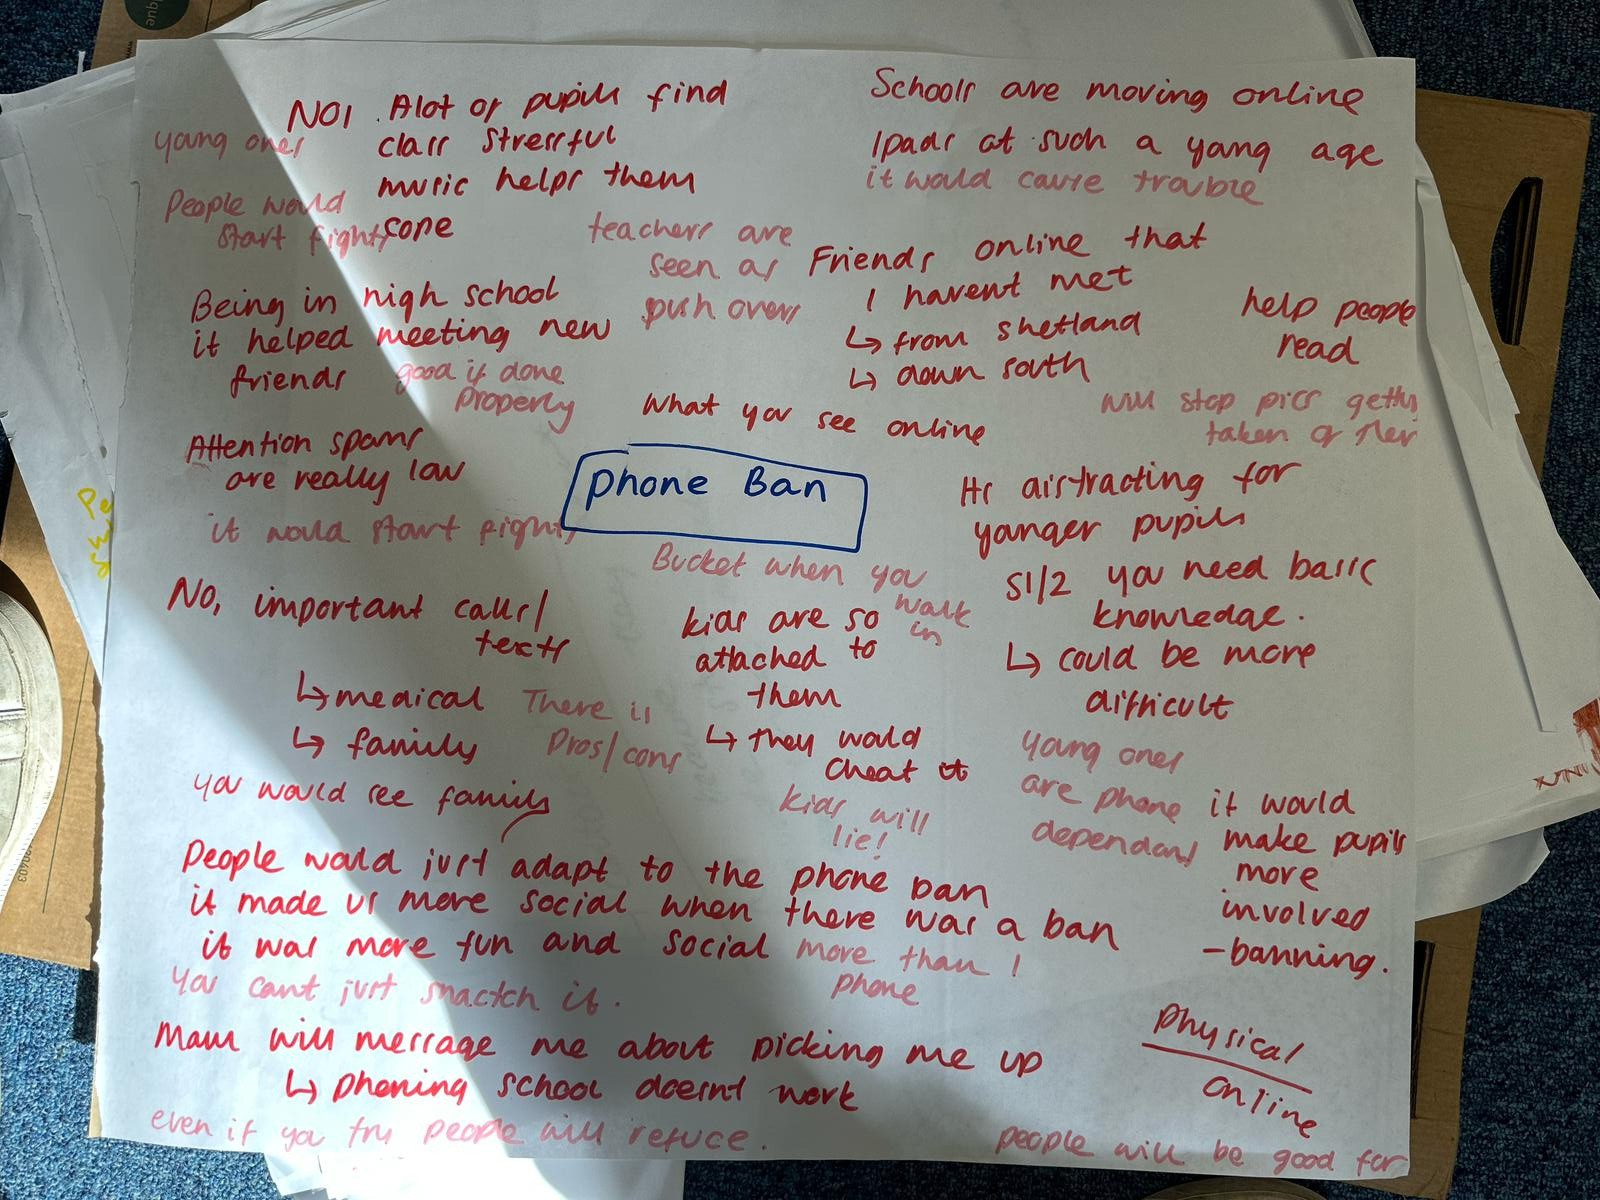 NO! Alot of pupils find
class stressful
music helps them
cope
young ones
People would
start fights
Schools are moving online
Ipads at such a young age
it would cause trouble
teachers are
seen as
push overs
Friends online that
I havent met
↳ from shetland
↳ down south
help people
read
Being in high school
it helped meeting new
friends
good if done
properly
What you see online
will stop pics getting
taken of
Attention spans
are really low
it would start fights
Phone Ban
Its distracting for
younger pupils
Bucket when you
walk
in
S1/2 you need basic
knowledge.
↳ could be more
difficult
No, important calls/
texts
↳ medical
↳ family
There is
Pros/cons
kids are so
attached to
them
↳ they would
cheat it
kids will
lie!
young ones
are phone
dependant
it would
make pupils
more
involved
- banning.
you would see family
People would just adapt to the phone ban
it made us more social when there was a ban
it was more fun and social more than !
phone
you cant just snactch it.
Mam will message me about picking me up
↳ phoning school doesnt work
even if you try people will refuce.
Physical
online
people will be good for